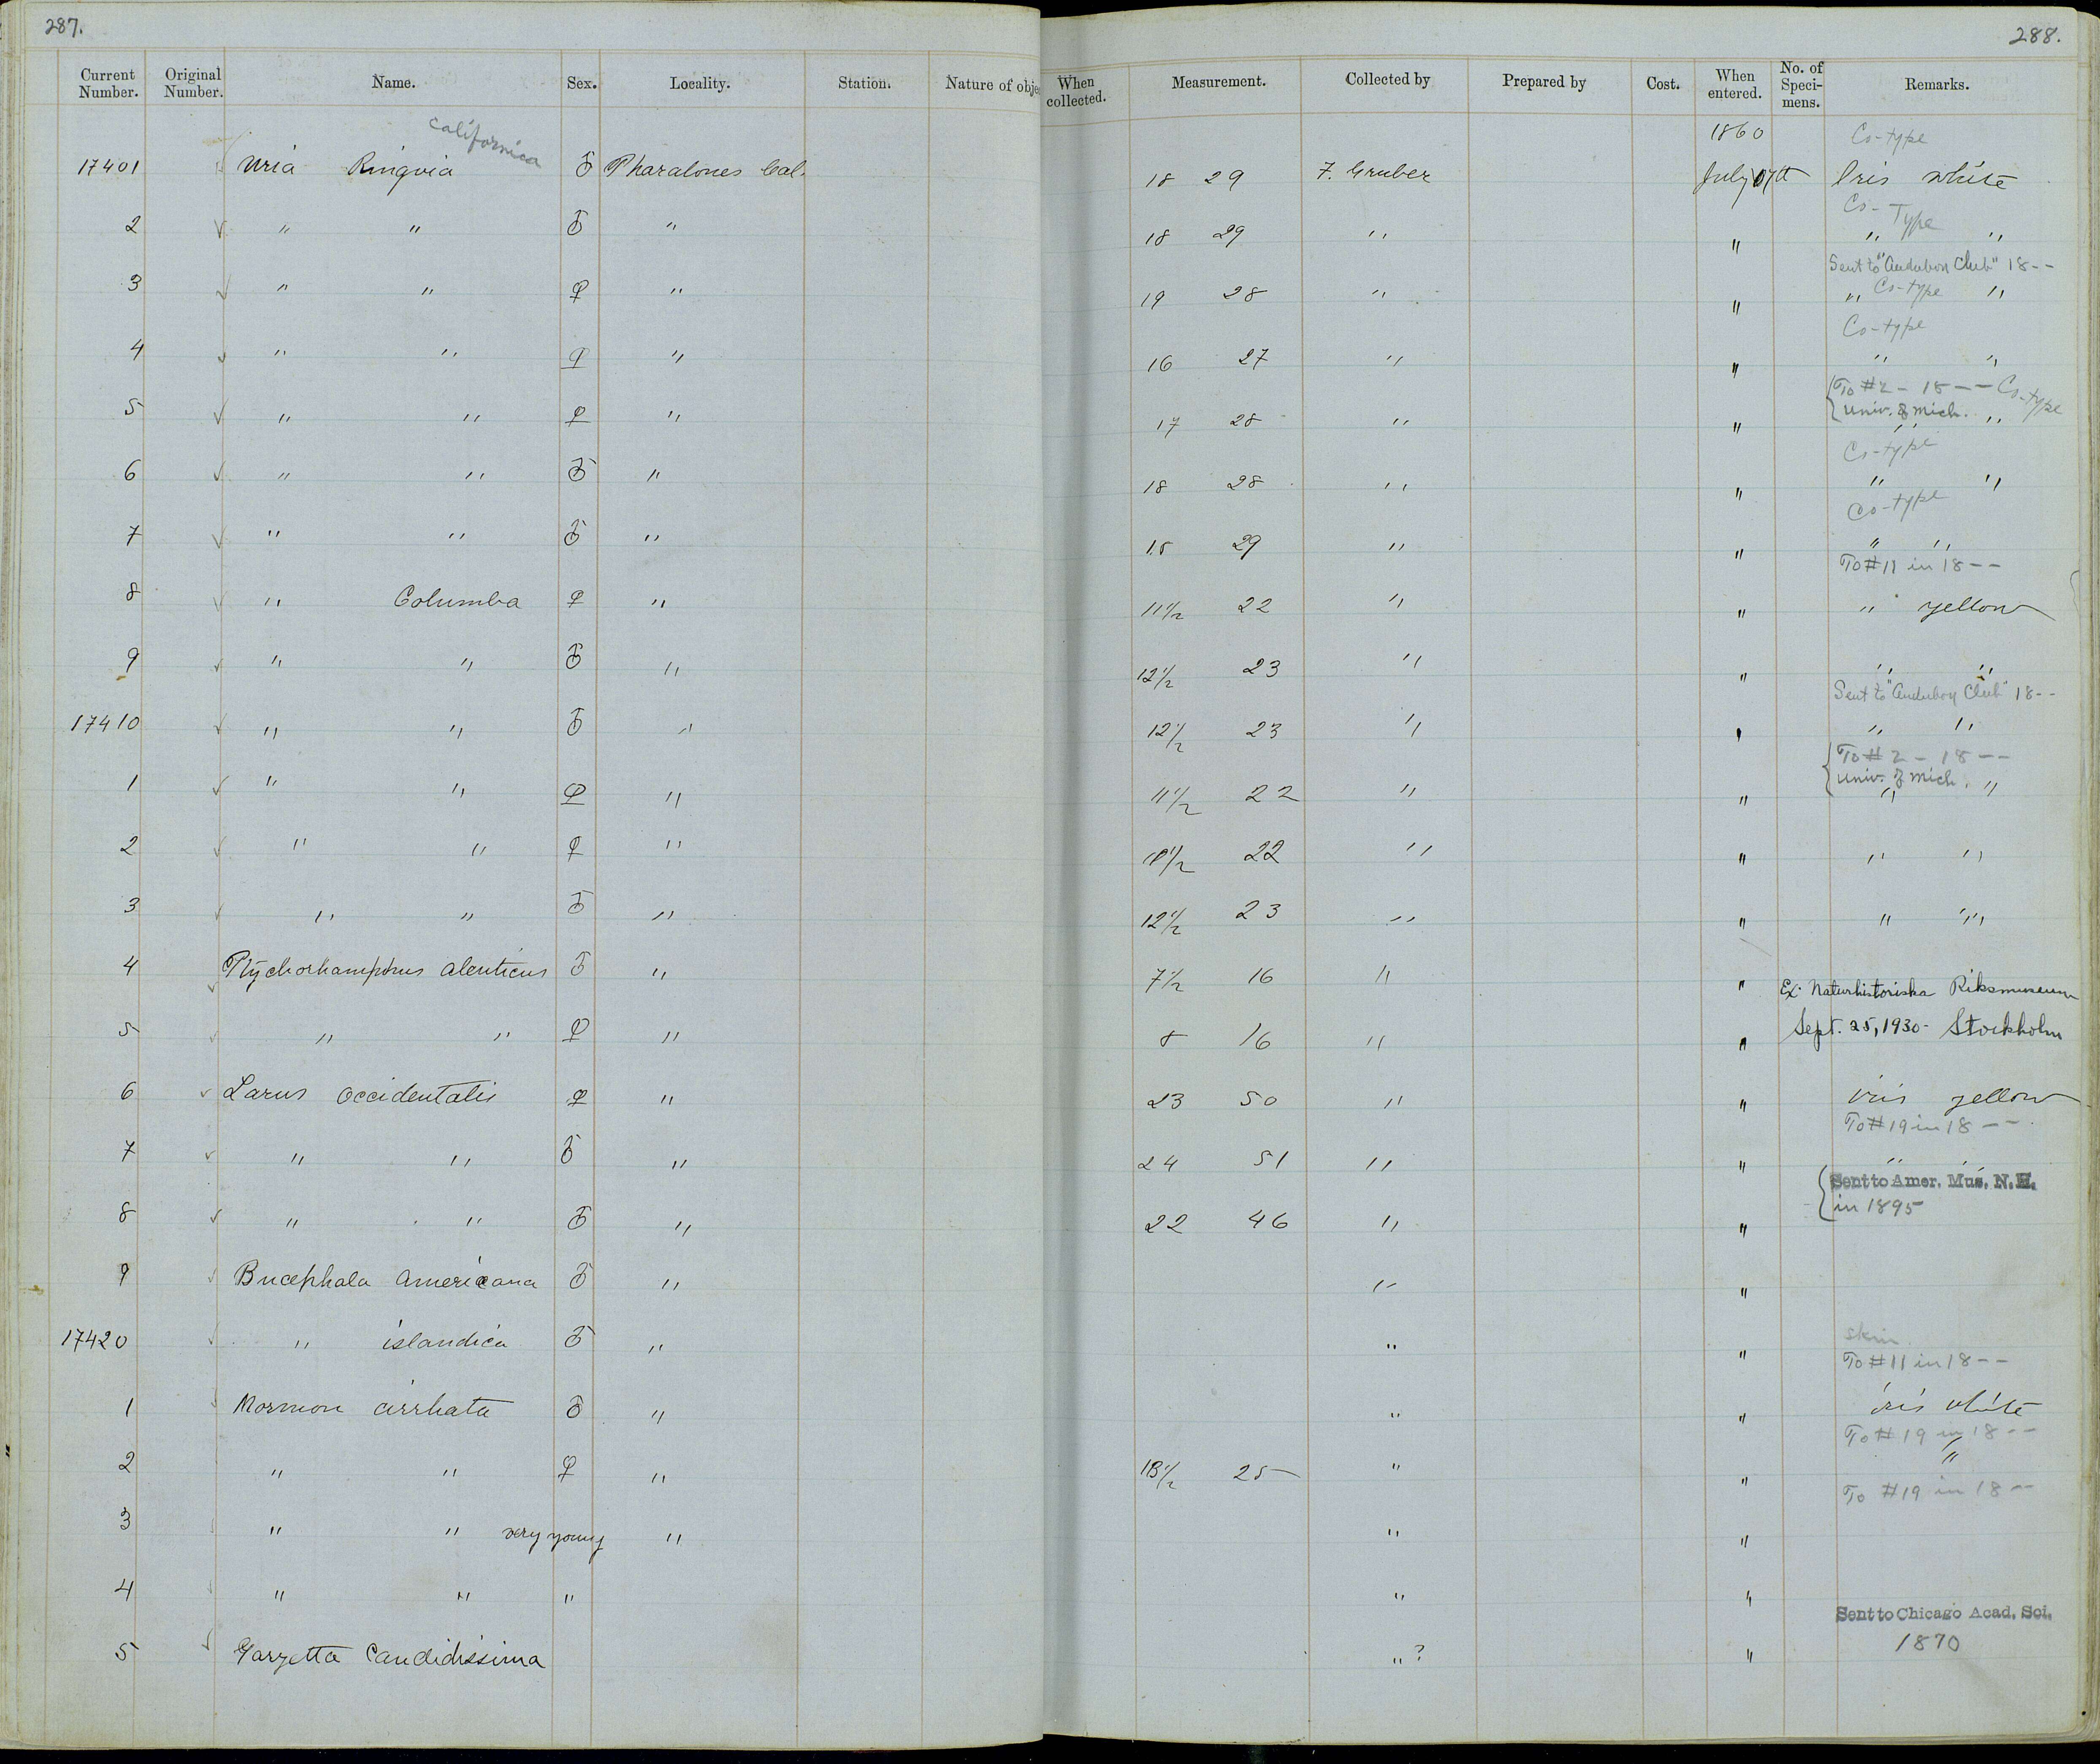 287.
288.
Current Number. Original Number. Name. Sex. Locality. Station. Nature of obje When collected. Measurement. Collected by Prepared by Cost. When entered. No. of Speci-mens. Remarks.
californica 1860 Co-type
17401 Uria Ringvia ♂ Pharalones Cal. 18 29 F. Gruber July 17th Iris white
Co-Type
2 ✓ " " ♂ " 18 29 " " " "
Sent to "Audubon Club" 18--
3 ✓ " " ♀ " 19 28 " " " Co-type "
Co-type
4 ✓ " " ♀ " 16 27 " " " "
To #2 - 18-- Co-type
5 ✓ " " ♀ " 17 28 " " Univ. of Mich. " "
Co-type
6 ✓ " " ♂ " 18 28 " " " "
Co-type
7 ✓ " " ♂ " 18 29 " " " "
To #11 in 18--
8 ✓ " Columba ♀ " 11 1/2 22 " " " yellow
9 ✓ " " ♂ " 12 1/2 23 " " " "
Sent to "Audubon Club" 18--
17410 ✓ " " ♂ " 12 1/2 23 " " " "
To #2 - 18--
1 ✓ " " ♀ " 11 1/2 22 " " Univ. of Mich. " "
2 ✓ " " ♀ " 1/2 22 " " " "
3 ✓ " " ♂ " 12 1/2 23 " " " "
4 ✓ Ptychorhamphus aleuticus ♂ " 7 1/2 16 " " Ex. Naturhistoriska Riksmuseum
5 ✓ " " ♀ " 8 16 " " Sept. 25, 1930 - Stockholm
6 ✓ Larus occidentalis ♀ " 23 50 " " iris yellow
To #19 in 18--.
7 ✓ " " ♂ " 24 51 " " " "
Sent to Amer. Mus. N.H.
8 ✓ " " ♂ " 22 46 " " in 1895
9 ✓ Bucephala americana ♂ " " "
skin.
17420 ✓ " islandica ♂ " " " To #11 in 18--
1 ✓ Mormon cirrhata ♂ " " " iris white
To #19 in 18--
2 " " ♀ " 13 1/2 25 " " "
To #19 in 18--
3 " " very young " " "
4 " " " " "
Sent to Chicago Acad. Sci.
5 ✓ Garzetta Candidissima " ? " 1870